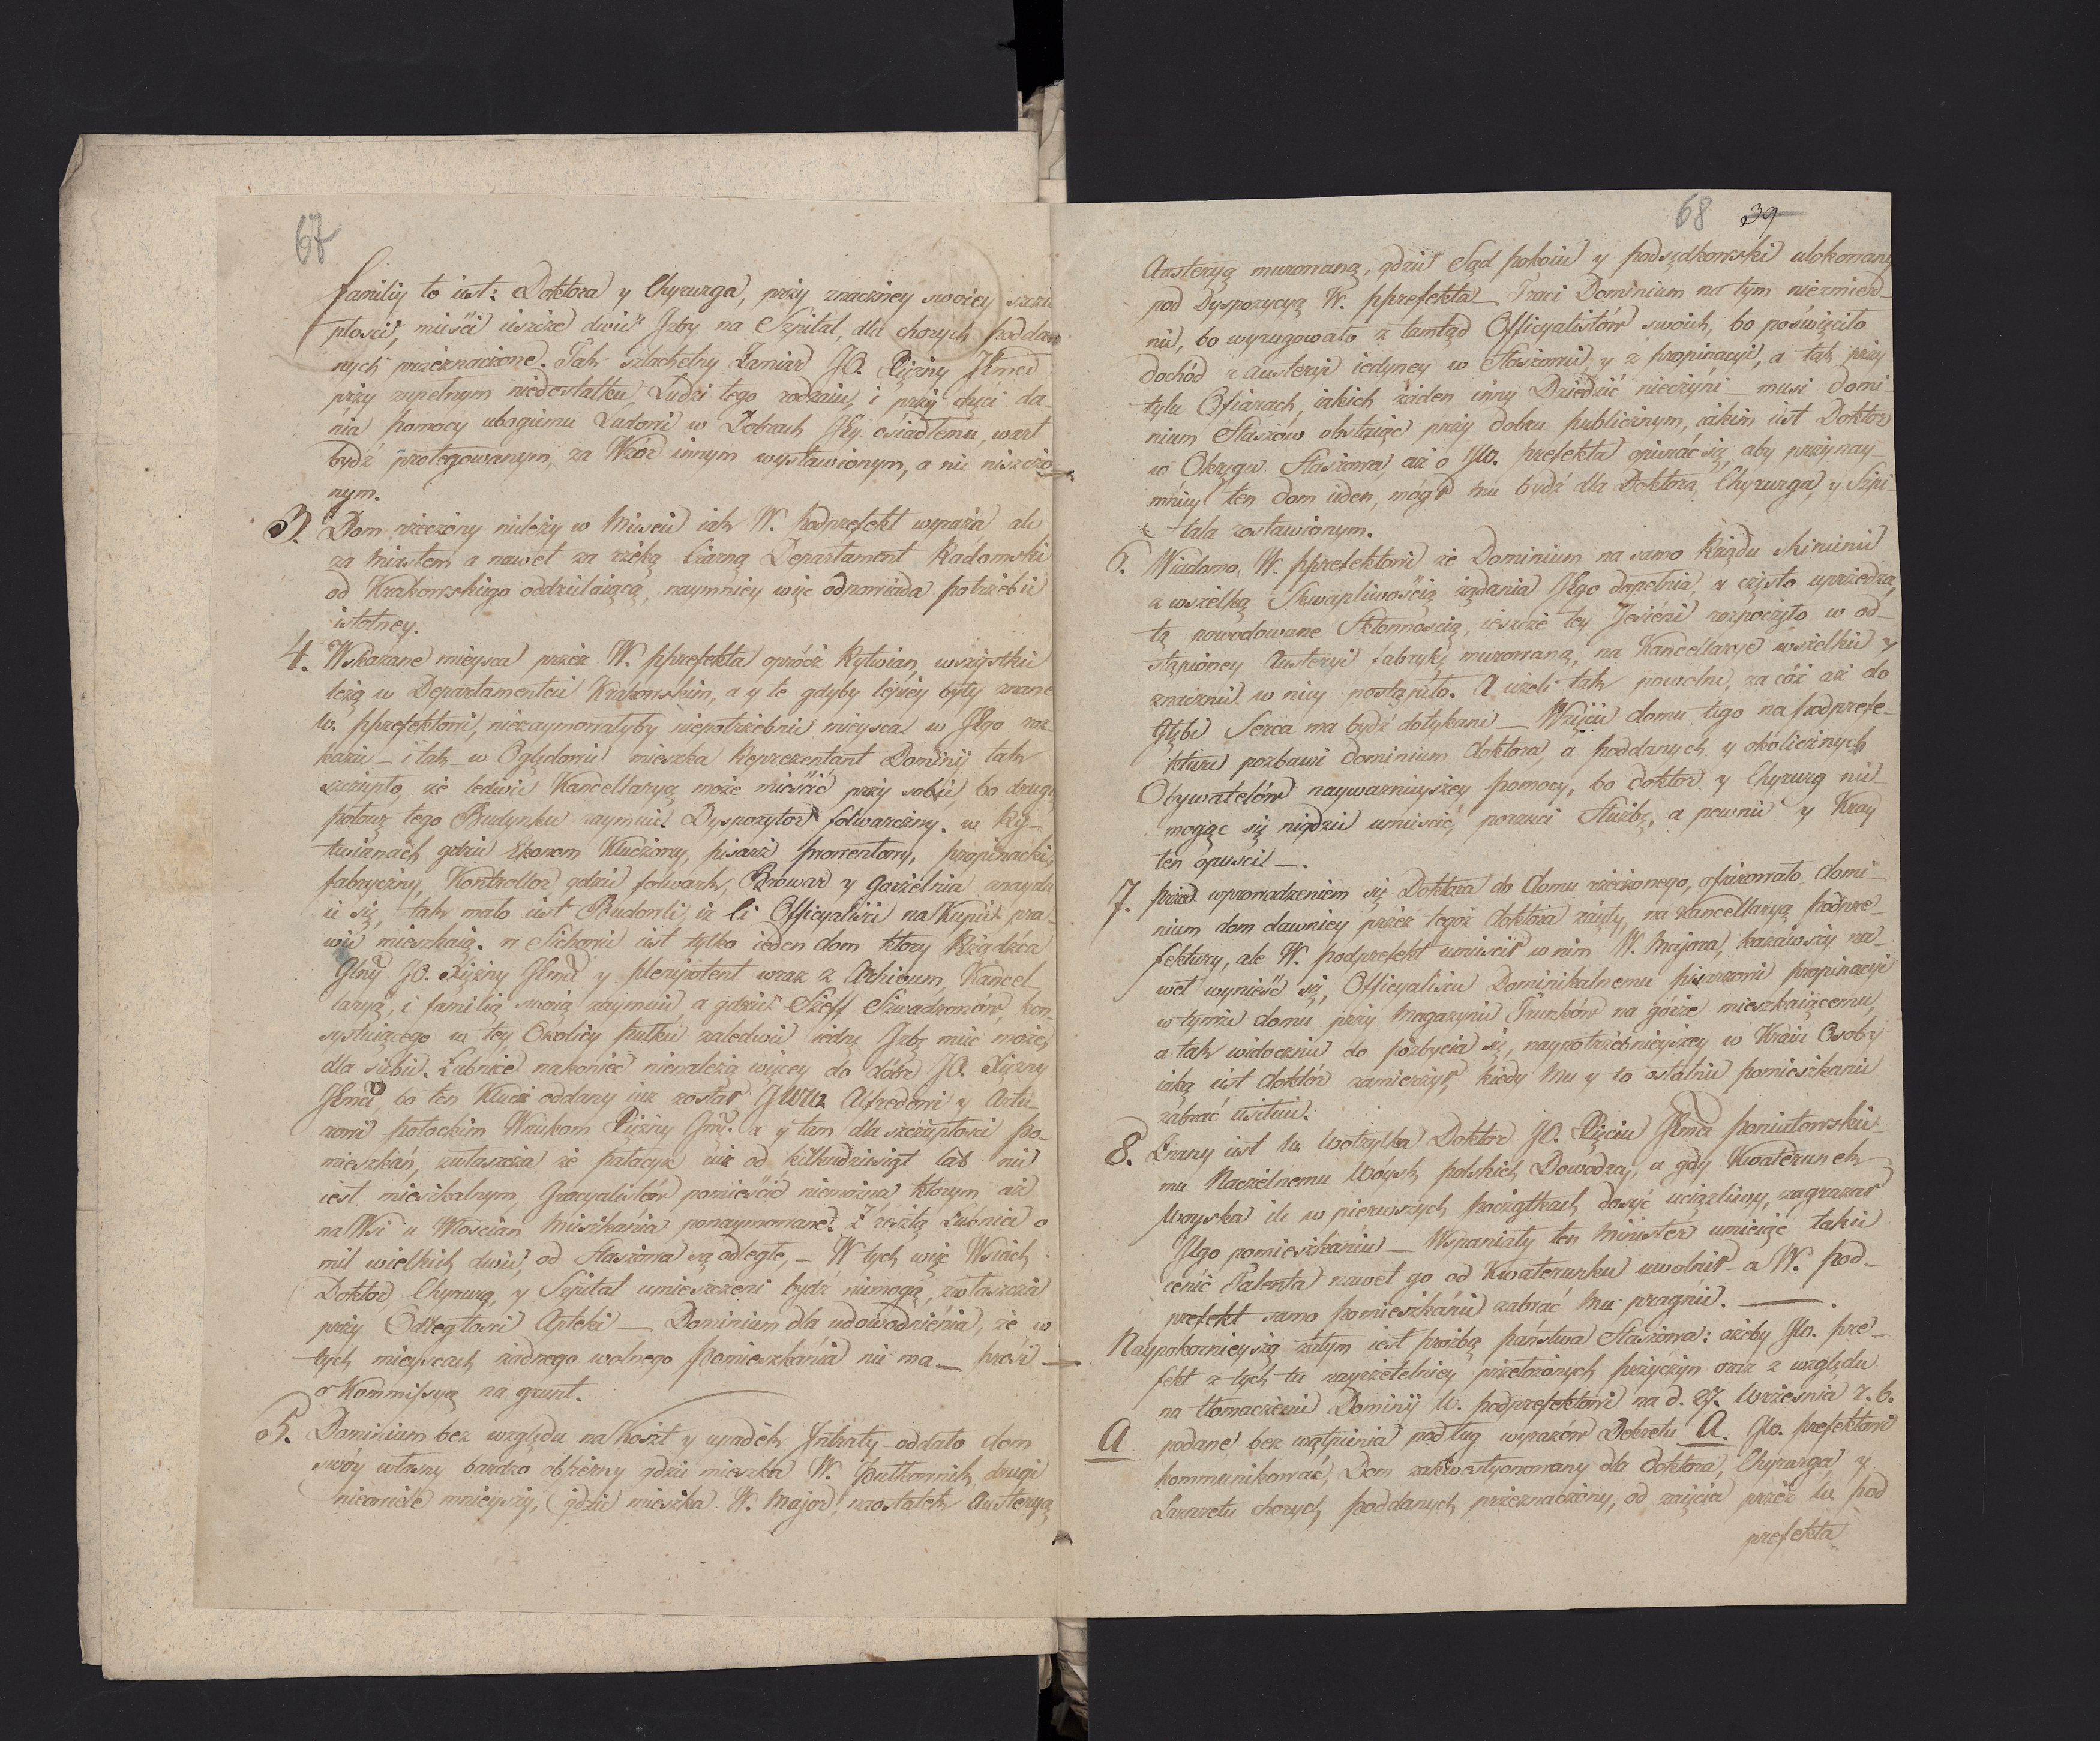 67
familiy to iest: Doktora y Chyrurga, przy znaczney swoiey szczu
płości, mieści ieszcze dwie Jzby na Szpital, dla chorych poddan
nych przeznaczone. Tak szlachetny Zamiar JO. Xiężny JEmci
przy zupełnym niedostatku Ludzi tego rodzaiu, i przy chęci da-
nia pomocy ubogiemu Ludowi w Dobrach JEy. osiadłemu, wart
bydź protegowanym, za Wzór innym wystawionym, a nie niszczo-
nym.
3. Dom rzeczony nieleży w Mieście iak W. Podprefekt wyraża ale
za Miastem a nawet za rzeką Czarną Departament Radomski
od Krakowskiego oddzielaiącą, naymniey więc odpowiada potrzebie
istotney.
4. Wskazane mieysca przez W. Pprefekta oprócz Rytwian, wszystkie
leżą w Departamencie Krakowskim, a y te gdyby lepiey były znane
W. Pprefektowi, niezaymowałyby niepotrzebnie mieysca w JEgo roz-
kazie – i tak – w Oględowie mieszka Reprezentant Dominij tak
szczupło, że ledwie Kancellaryą może mieścić przy sobie, bo drugą
połowę tego Budynku zaymuie Dyspozytor folwarczny. w Ry-
twianach gdzie Ekonom Kluczowy, pisarz prowentowy, propinacki,
fabryczny, Kontrollor gdzie folwark, Browar y Gorzelnia znaydu
ie się, tak mało iest Budowli, iż ci Officyaliści na Kupie pra-
wie mieszkaią. w Sichowie iest tylko ieden dom ktory Rządzca
Glny JO. Xiężny JEmci y plenipotent wraz z Archivum, Kancel
laryą, i familią swoią zaymuie, a gdzie Szeff Szwadronów, kon-
systuiącego w tey Okolicy Pułku zaledwie iedną Jzbę mieć może
dla siebie. Łubnice nakoniec nienależą więcey do dóbr JO. Xiężny
JEmci, bo ten Klucz oddany iuż został JWW. Alfredowi y Artu-
rowi Potockim Wnukom Xiężny Jmci. a y tam dla szczupłości po-
mieszkań, zwłaszcza że pałacyk iuż od kilkudziesiąt lat nie
iest mieszkalnym, Gracyalistów pomieścić niemożna ktorym aż
na Wsi u Włoscian Mieszkania ponaymowane. Z resztą Łubnice o
mil wielkich dwie, od Staszowa są odległe, – W tych więc Wsiach
Doktor, Chyrurg, y Szpital umieszczeni bydź niemogą, zwłaszcza
przy Odległości Apteki – Dominium dla udowodnienia, że w
tych mieyscach żadnego wolnego Pomieszkania nie ma – prosi –
o Kommissyą na grunt.
5. Dominium bez względu na Koszt y upadek Jntraty – oddało dom
swóy własny bardzo obszerny gdzie mieszka W. Pułkownik, drugi
niewiele mnieyszy, gdzie mieszka W. Major, naostatek Austeryą
68 39
Austeryą murowaną, gdzie Sąd pokoiu y podsędkowski ulokowany
pod Dyspozycyą W. Pprefekta – Traci Dominium na tym niezmier-
nie, bo wyrugowało z tamtąd Officyalistów swoich, bo poświęciło
dochód z austeryi iedyney w Staszowie, y z propinacyi, a tak przy
tylu Ofiarach, iakich żaden inny Dziedzic nieczyni – musi domi-
nium Staszów obstaiąc przy dobru publicznym, iakim iest Doktor
w Okręgu Staszowa, aż o JW. prefekta opierać się, aby przynay-
mniey ten dom ieden, mógł mu bydź dla Doktora, Chyrurga, y Szpi-
tala zostawionym.
6. Wiadomo W. Pprefektowi że Dominium na samo Rządu skinienie
z wszelką Skwapliwością żądania JEgo dopełnia, y często uprzedza,
tą powodowane Skłonnością, ieszcze tey Jesieni rozpoczęto w od-
stąpioney Austeryi fabrykę murowaną, na Kancellarye wszelkie y
znacznie w niey postąpiło. A ieżeli tak powolne, za cóż aż do
Głębi Serca ma bydź dotykane – Wzięcie domu tego na podprefe-
kturę pozbawi Dominium doktora, a poddanych y okolicznych
Obywatelów nayważnieyszey pomocy, bo doktor y Chyrurg nie
mogąc się nigdzie umieścić, porzuci Służbę, a pewnie y Kray
ten opuści –.
7. Przed wprowadzeniem się Doktora do domu rzeczonego, ofiarowało domi-
nium dom dawniey przez tegoż doktora zaięty, na kancellaryą podpre-
fektury, ale W. podprefekt umieścił w nim W. Majora, kazawszy na-
wet wynieść się, Officyaliście Dominikalnemu pisarzowi propinacyi
w tymże domu przy Magazynie Trunków na górze mieszkaiącemu,
a tak widocznie do pozbycia się, naypotrzebnieyszey w Kraiu Osoby
iaką iest doktór zamierzył, kiedy Mu y to ostatnie pomieszkanie
zabrać usiłuie.
8. Znany iest W. Wotrylka Doktor JO. Xięciu JEmci Poniatowskie-
mu Naczelnemu Woysk polskich Dowódzcy, a gdy Kwaterunek
Woyska ile w pierwszych początkach dosyć uciążliwy, zagrażał
JEgo pomieszkaniu – Wspaniały ten Minister umieiąc takie
cenić Talenta nawet go od Kwaterunku uwolnił – a W. Pod-
prefekt samo pomieszkanie zabrać mu pragnie. –––.
Naypokornieyszą zatym iest prośbą państwa Staszowa: ażeby JW. pre-
fekt z tych tu nayrzetelniey przełożonych przyczyn oraz z względu
na tłomaczenie Dominij W. podprefektowi na d. 27. Września r. b.
A podane bez wątpienia podług wyrazów Dekretu A. JW. Prefektowi
kommunikować, Dom zakwestyonowany dla doktora, Chyrurga y
Lazaretu chorych poddanych przeznaczony, od zaięcia przez W. Pod
prefekta